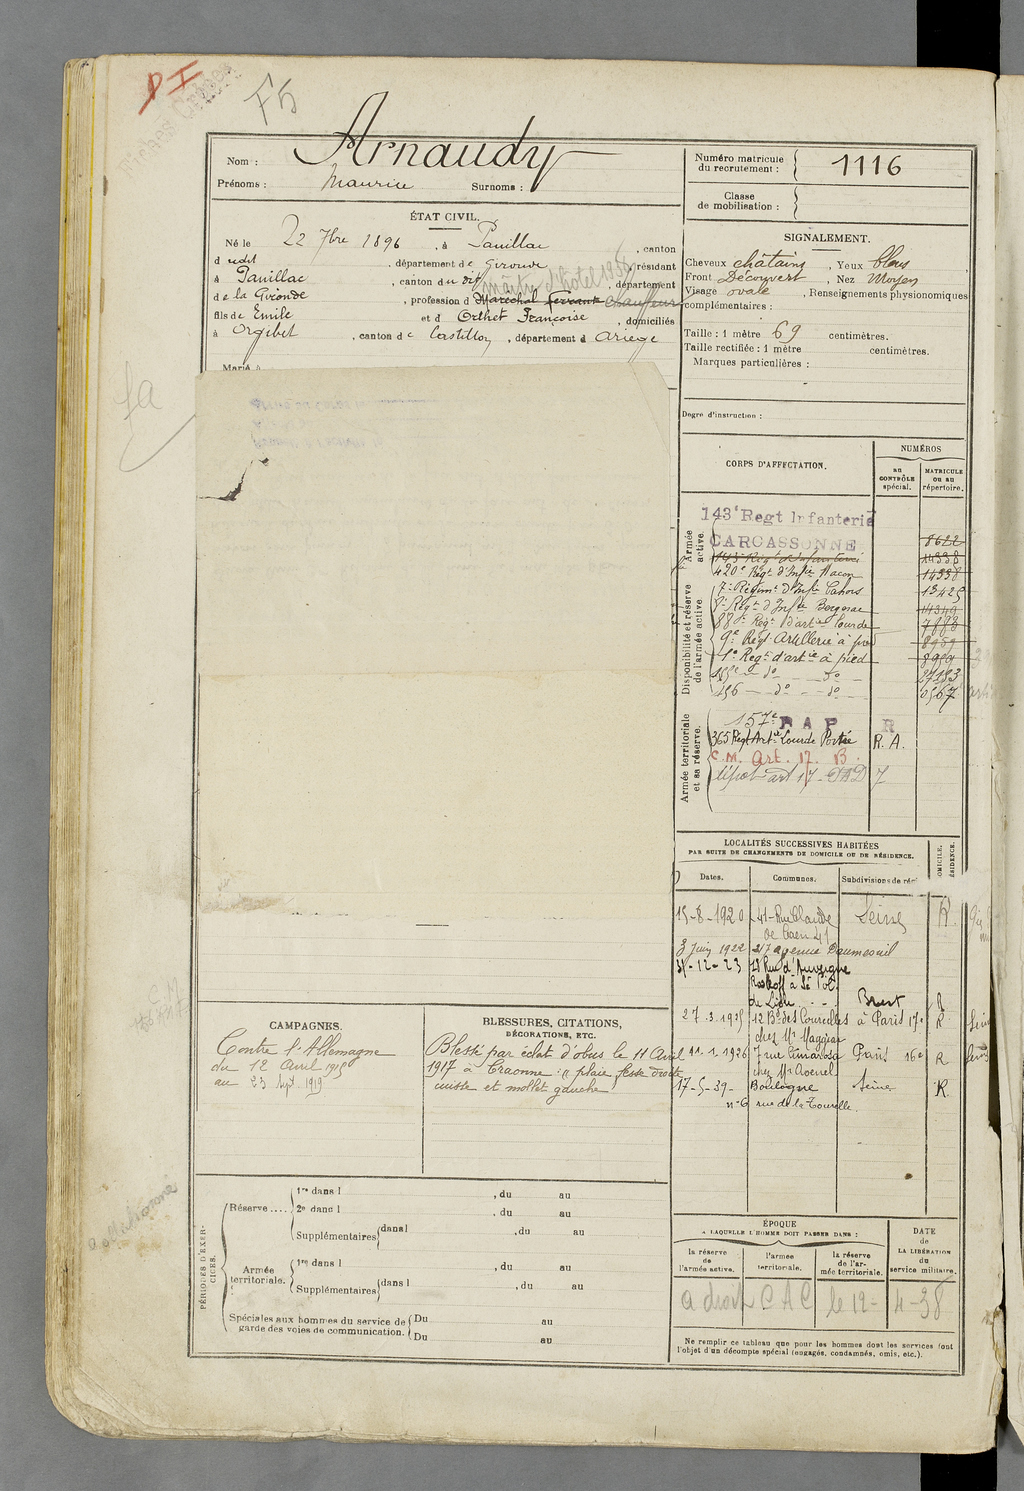 P I
F5
Nom : Arnaudy
Prénoms : Maurice Surnoms :
Numéro matricule
du recrutement : 1116
Classe
de mobilisation :
ÉTAT CIVIL.
Né le 22 7bre 1896, à Pauillac, canton
d udit, département de Gironde, résidant
à Pauillac, canton du dit, département
maître d'hotel 1938
de la Gironde, profession d Maréchal ferrant chauffeur
fils de Emile et d Orthet Françoise, domiciliés
à Orgibet, canton de Castillon, département d Ariège
Marié à
SIGNALEMENT.
Cheveux châtains, Yeux bleus
Front Découvert, Nez Moyen
Visage ovale, Renseignements physionomiques
complémentaires :
Taille : 1 mètre 69 centimètres.
Taille rectifiée : 1 mètre centimètres.
Marques particulières :
Degré d'instruction :
CORPS D'AFFECTATION.
NUMÉROS
au
CONTRÔLE
spécial.
MATRICULE
ou au
répertoire.
Armée
active.
143e Regt Infanterie
CARCASSONNE 8622
143e Régt d'Infanterie 14338
420e Régt d'Infie Macon 14338
Disponibilité et réserve
de l'armée active.
7e Régimt d'Infie Cahors 13425
Régt d'Infie Bergerac 14349
88e Régt d'artie Lourde 7883
9e Régt Artillerie à pied 8959
1e Regt d'artie à pied 8959
155e - do - do 27183
156 - do - do 6567
Armée territoriale
et sa réserve.
157e R A P R
365 Régt Artie Lourde Portée R. A.
C. M. Art. 17. B.
dépot art 17 7
LOCALITÉS SUCCESSIVES HABITÉES
PAR SUITE DE CHANGEMENTS DE DOMICILE OU DE RÉSIDENCE.
Dates. Communes. Subdivisions de rég
15-8-1920 41 - Rue Claude Seine R.
de Caen 41
3 Juin 1922 217 avenue Daumesnil
31-12-23 28 Rue d'Auvergne
Roskoff à St Pol
de Léon Brest R
27-3-1925 12 Bd des Courcelles à Paris 17e R
chez Mr
11-1-1926 7 rue Cimarosa Paris 16e R
chez Mr
17-5-39- Boulogne Seine R.
n°6 rue de la Tourelle.
CAMPAGNES.
Contre l'Allemagne
du 12 Avril 1915
au 23 Sept 1919
BLESSURES, CITATIONS,
DÉCORATIONS, ETC.
Blessé par éclat d'obus le 11 Avril
1917 à Craonne : "plaie fesse droite
cuisse et mollet gauche"
PÉRIODES D'EXER-
CICES.
Réserve....
1re dans l , du au
2e dans l , du au
Supplémentaires dans l , du au
Armée
territoriale.
1re dans l , du au
Supplémentaires dans l , du au
Spéciales aux hommes du service de
garde des voies de communication.
Du au
Du au
ÉPOQUE
A LAQUELLE L'HOMME DOIT PASSER DANS :
la réserve
de
l'armée active.
l'armée
territoriale.
la réserve
de l'ar-
mée territoriale.
DATE
de
LA LIBÉRATION
du
service militaire.
a droit C A C le 12-4-38
Ne remplir ce tableau que pour les hommes dont les services font
l'objet d'un décompte spécial (engagés, condamnés, omis, etc.).